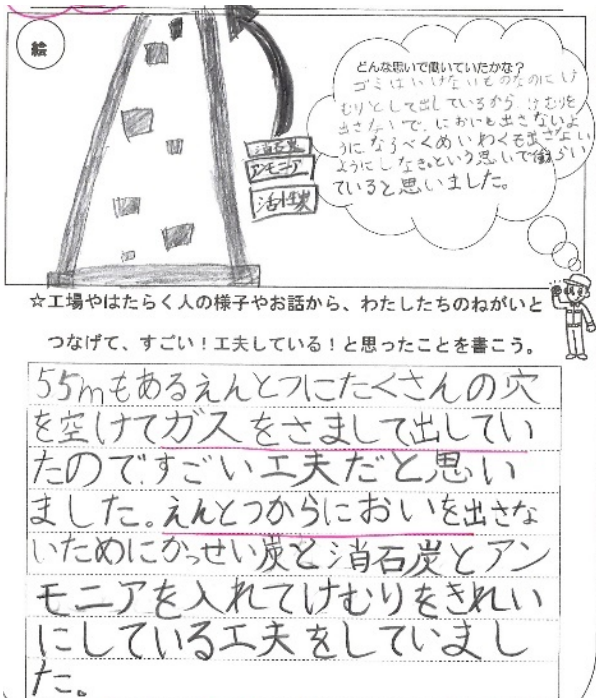 絵
どんな思いで働いていたかな？
ゴミはいけないものなのにけ
むりとして出しているから、けむりを
出さないで、においを出さないよ
うになるべくめいわくも出さない
ようにしなきゃという思いで働らい
ていると思いました。
消石炭
アンモニア
活性炭
☆工場やはたらく人の様子やお話から、わたしたちのねがいと
つなげて、すごい！工夫している！と思ったことを書こう。
55mもあるえんとつにたくさんの穴
を空けてガスをさまして出してい
たのですごい工夫だと思い
ました。えんとつからにおいを出さな
いためにかっせい炭と消石炭とアン
モニアを入れてけむりをきれい
にしている工夫をしていまし
た。